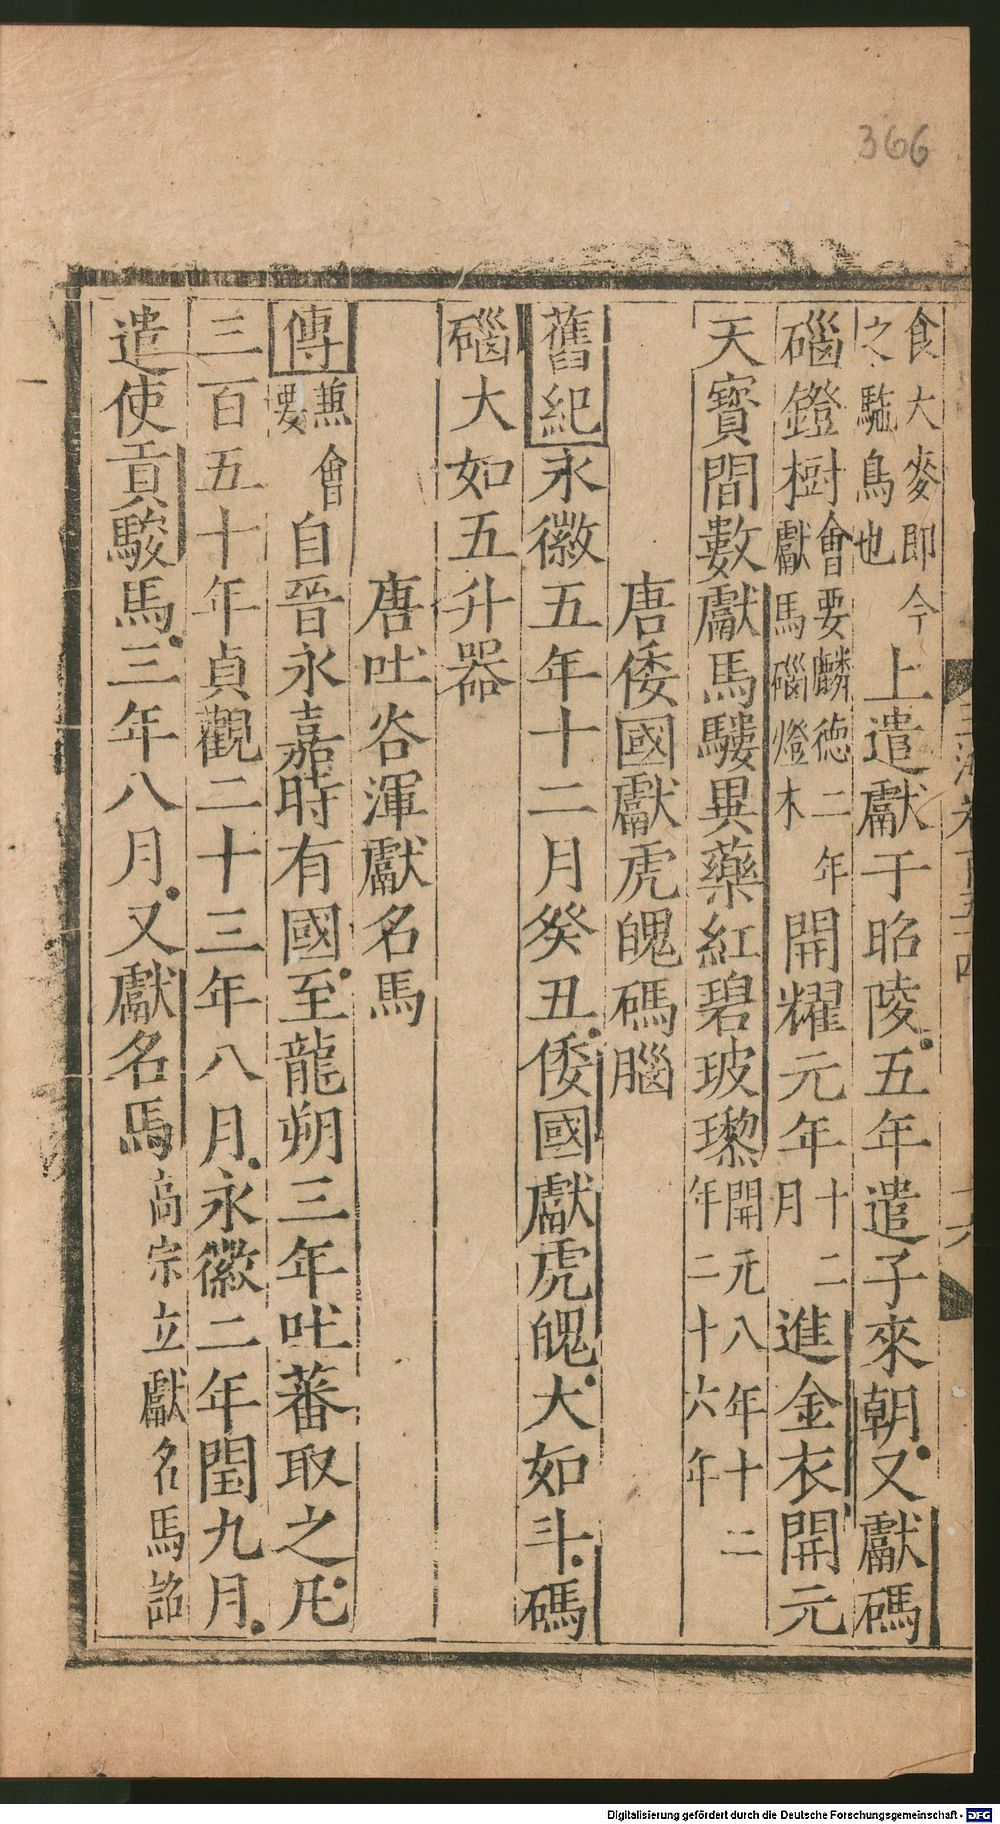 366
食大麥即今之駞鳥也上遣獻于昭陵五年遣子來朝又獻碼
碯鐙樹會要麟德二年獻馬碯燈木開耀元年十二月進金衣開元
天寶間數獻馬騾異藥紅碧玻瓈開元八年十二年二十六年
唐倭國獻虎魄碼腦
舊紀永徽五年十二月癸丑倭國獻虎魄大如斗碼
碯大如五升器
唐吐谷渾獻名馬
傳兼會要自晉永嘉時有國至龍朔三年吐蕃取之凡
三百五十年貞觀二十三年八月永徽二年閏九月
遣使貢駿馬三年八月又獻名馬高宗立獻名馬詔
Digitalisierung gefördert durch die Deutsche Forschungsgemeinschaft - DFG